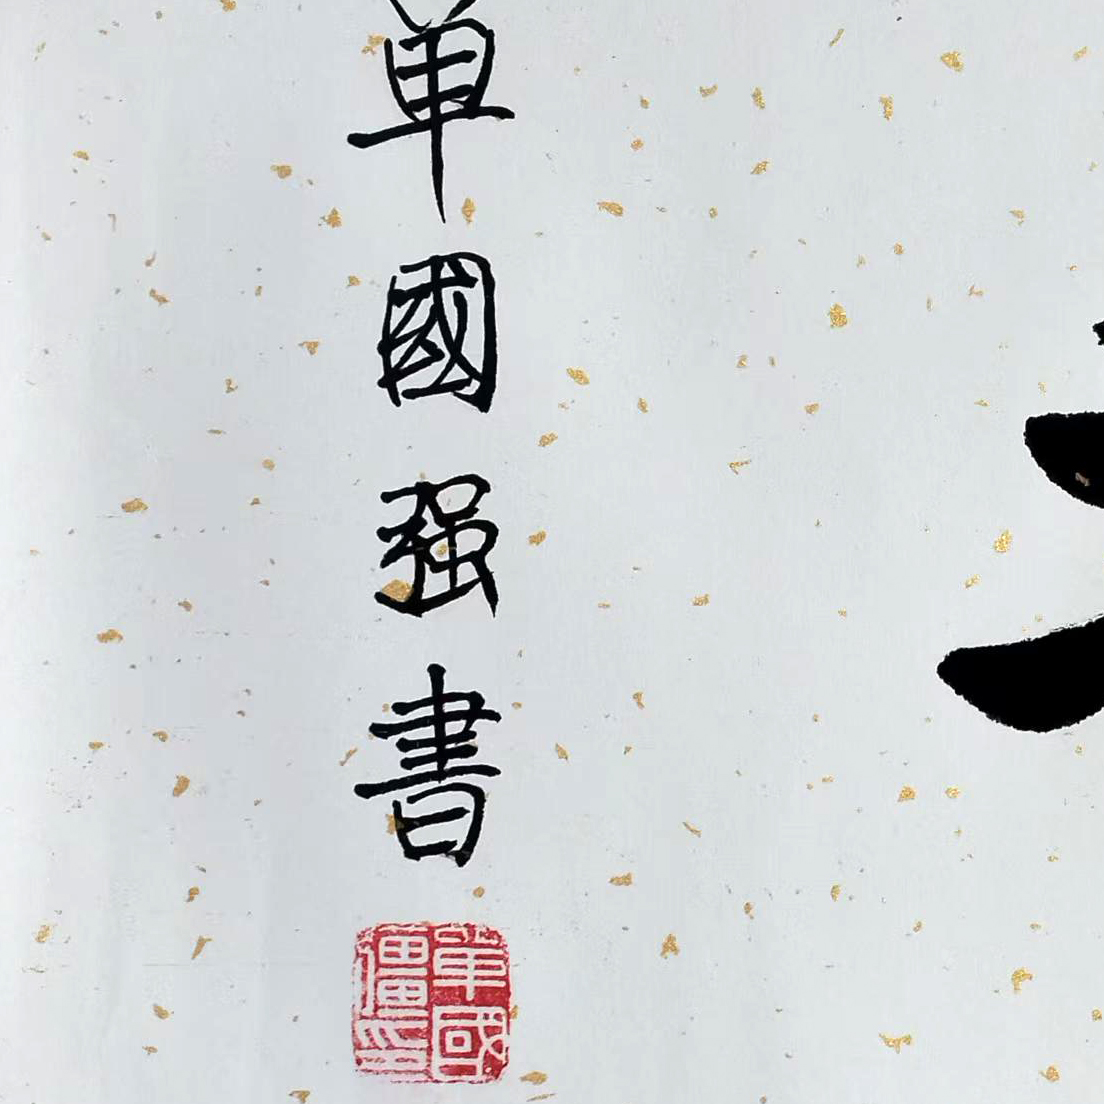 单國强書
單國彊印